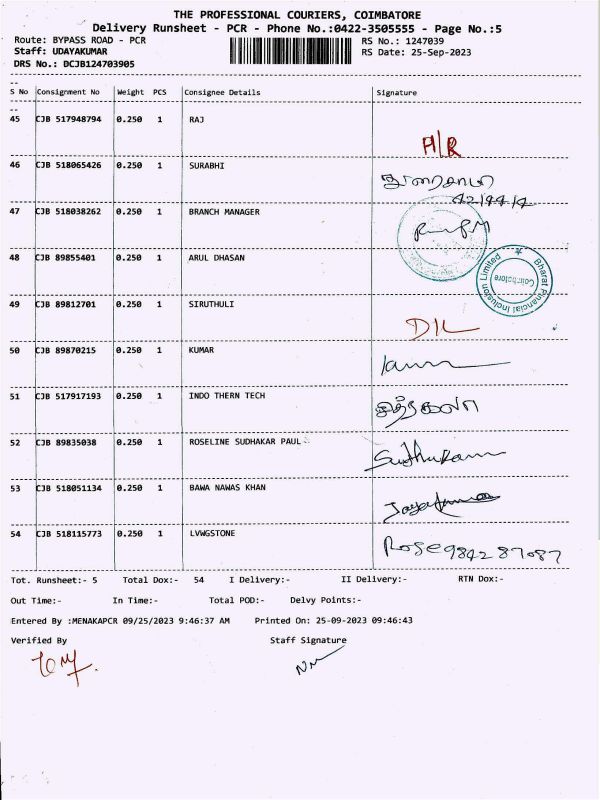 THE PROFESSIONAL COURIERS, COIMBATORE
Delivery Runsheet - PCR - Phone No.:0422-3505555 - Page No.:5
Route: BYPASS ROAD - PCR RS No.: 1247039
Staff: UDAYAKUMAR RS Date: 25-Sep-2023
DRS No.: DCJB124703905
S No Consignment No Weight PCS Consignee Details Signature
45 CJB 517948794 0.250 1 RAJ
H/R
46 CJB 518065426 0.250 1 SURABHI
47 CJB 518038262 0.250 1 BRANCH MANAGER
48 CJB 89855401 0.250 1 ARUL DHASAN
Bharat Financial Inclusion Limited
Coimbatore
49 CJB 89812701 0.250 1 SIRUTHULI
D/L
50 CJB 89870215 0.250 1 KUMAR
51 CJB 517917193 0.250 1 INDO THERN TECH
52 CJB 89835038 0.250 1 ROSELINE SUDHAKAR PAUL
53 CJB 518051134 0.250 1 BAWA NAWAS KHAN
54 CJB 518115773 0.250 1 LVWGSTONE
Rose 9842 87087
Tot. Runsheet:- 5 Total Dox:- 54 I Delivery:- II Delivery:- RTN Dox:-
Out Time:- In Time:- Total POD:- Delvy Points:-
Entered By :MENAKAPCR 09/25/2023 9:46:37 AM Printed On: 25-09-2023 09:46:43
Verified By Staff Signature